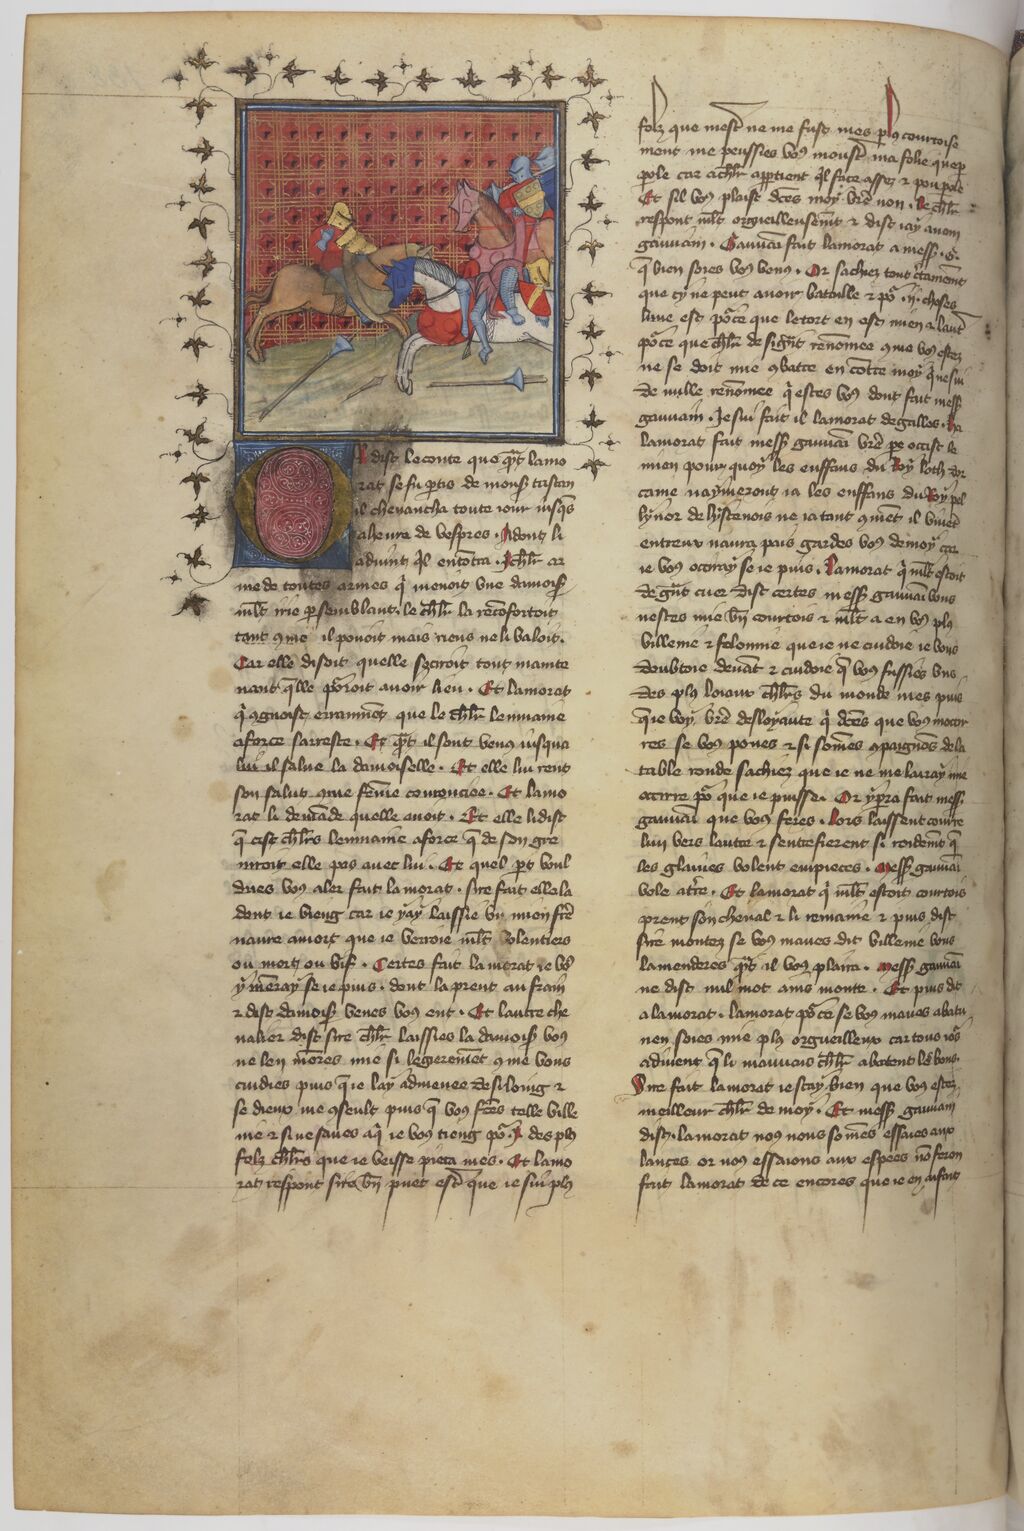 Or dist le conte que qͣt lamo
rat se fu ptis de monsʳ tristan
il cheuaucha toute iour iusqs
a heure de vespres . Adont li
aduint ql encōtra .i. chlr ar
me de toutes armes q̇ menoit vne damoisˡ
mlt irie p semblant . le chlr la recōfortoit
tant ꝯme il pouoit mais riens ne li valoit .
Car elle disoit quelle sociroit tout mainte
nant qͤlle porroit auoir lieu . Et lamorat
q̇ ꝯgnoist erraumēt que le chlr lenmaine
a force sarreste . Et qͣt il sont venꝰ iusqua
lui il salue la damoiselle . Et elle lui rent
son salut ꝯme fēme courouciee . Et lamo
rat li demāde quelle auoit . Et elle li dist
q̄ cist chlrs lenmaine a force q̄ de son gre
niroit elle pas auec lui . Et quel pͣt voul
dries voꝰ aler fait lamorat . sire fait elle la
dont ie vieng car ie y ay laissie vn mien fre
naure a mort que ie verroie mlt volentiers
ou mort ou vif . Certes fait lamorat ie voꝰ
y menray se ie puis . dont la prent au frain
⁊ dist damoisˡ venes voꝰ ent . Et lautre che
ualier dist sire chlr laissies la damoisˡ voꝰ
ne len menres mie si legierement ꝯme vous
cuidies puis q̄ ie lay admenee de si loing ⁊
se dieux me ꝯseult puis q̄ voꝰ fctēs telle ville
nie ⁊ si ne saues a q̇ ie voꝰ tieng poʳ .i. des plꝰ
folz chlrs que ie veisse pieca mes . Et lamo
rat respont sire bn̄ puet estʳ que ie sui plꝰ
folz que mestʳ ne me fust mes plꝰ courtoise
ment me peussies voꝰ moustʳ ma folie que p
parole car a chlr apptient ql face asses ⁊ pou parole
Et sil voꝰ plaist dites moy vre non . le chlr
respont mlt orgueilleusemt ⁊ dist iay a nom
gauuain . Gauuain fait lamorat a messʳ .G.
q̄ bien soies voꝰ venꝰ . Or sachiez tout ctainemēt
que cy ne puet auoir bataille ⁊ poʳ .ii. choses
lune est poʳ ce que le tort en est mien ⁊ laut
poʳ ce que chlr de si gͣnt renōmee ꝯme voꝰ estes
ne se doit mie ꝯbatre encōtre moy q̇ ne sui
de nulle renōmee q̇ estes voꝰ dont fait messʳ
gauuain . Je sui fait il lamorat de galles . Ha
lamorat fait messʳ gauuain vre pe occist le
mien pour quoy les enffans du Roy loth dor
canie naymeront ia les enffans du Roy pel
lynor de lystenois ne ia tant ꝯment il viuēt
entreux naura pais gardes voꝰ de moy car
ie voꝰ occiray se ie puis . Lamorat q̇ mlt estoit
de gͣnt cuer dist certes messʳ gauuain vous
nestes mie bn̄ courtois ⁊ mlt a en voꝰ plꝰ
villenie ⁊ felonnie que ie ne cuidoie ie vous
doubtoie deuāt ⁊ cuidoie q̄ voꝰ fussies vns
des plꝰ loiaux chlrs du monde mes puis
que ie voy vre desloyaute q̇ dites que voꝰ moccir
res se voꝰ poues ⁊ si somes ꝯpaignōs de la
table ronde sachiez que ie ne me lairay mie
occirre poʳ que ie puisse . Or y parra fait messʳ
gauuain que voꝰ feres . Lors laissent courre
lun vers lautre ⁊ sentrefierent si roidemēt q̄
les glaiues volent en pieces . Messʳ gauuain
vole a tre . Et lamorat q̇ mlt estoit courtois
prent son cheual ⁊ li remaine ⁊ puis dist
sire montez se voꝰ maues dit villenie vous
lamenderes qͣt il voꝰ plaira . Messʳ gauuain
ne dist nul mot ains monte . Et puis dit
a lamorat . lamorat poʳ ce se voꝰ maues abatu
nen soies mie plꝰ orgueilleux car tous iors
aduient q̄ li mauuais chlr abatent les bons .
Sire fait lamorat ie scay bien que voꝰ estes
meilleur chlr de moy . Et messʳ gauuain
dist . lamorat noꝰ nous somes essaies aux
lances or noꝰ essaions aux espees nō feron
fait lamorat de ce encores que ie en ai fait